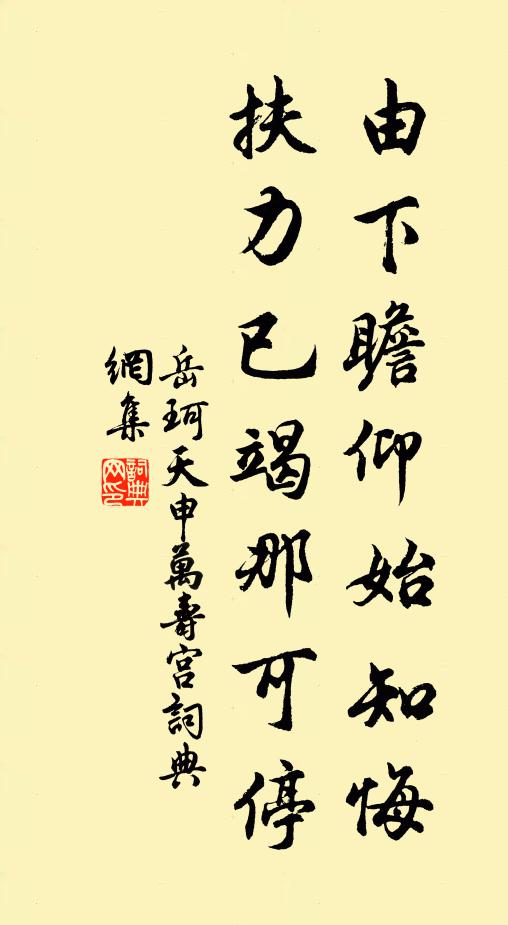 由下瞻仰始知悔
扶力已竭那可停
岳珂天申萬壽宮詞典
網集
詞典
网印